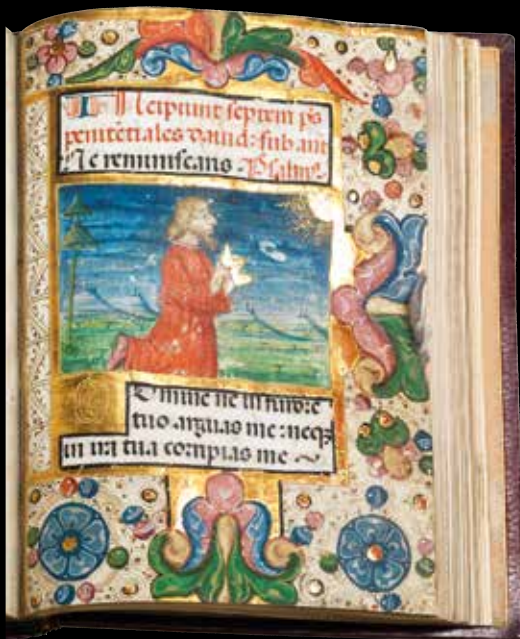 Incipiunt septem ps
penitētiales dauid: sub ant
Ne reminiscaris. Psalm⁹.
Domine ne in furore
tuo arguas me: neqȝ
in ira tua corripias me